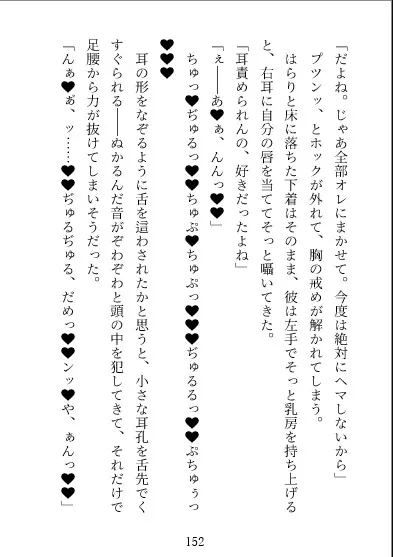 「だよね。じゃあ全部オレにまかせて。今度は絶対にヘマしないから」
プツンッ、とホックが外れて、胸の戒めが解かれてしまう。
はらりと床に落ちた下着はそのまま、彼は左手でそっと乳房を持ち上げる
と、右耳に自分の唇を当ててそっと囁いてきた。
「耳責められんの、好きだったよね」
「ぇ――あ♥ぁ、んんっ♥♥」
ちゅっ♥ぢゅるっ♥♥ちゅぷ♥ちゅぷっ♥♥♥ぢゅるるっ♥♥ぷちゅぅっ
♥♥♥
耳の形をなぞるように舌を這わされたかと思うと、小さな耳孔を舌先でく
すぐられる――ぬかるんだ音がぞわぞわと頭の中を犯してきて、それだけで
足腰から力が抜けてしまいそうだった。
「んぁ♥ぁ゙、ッ……♥♥ぢゅるぢゅる、だめっ♥♥ンッ♥や、ぁんっ♥♥」
152